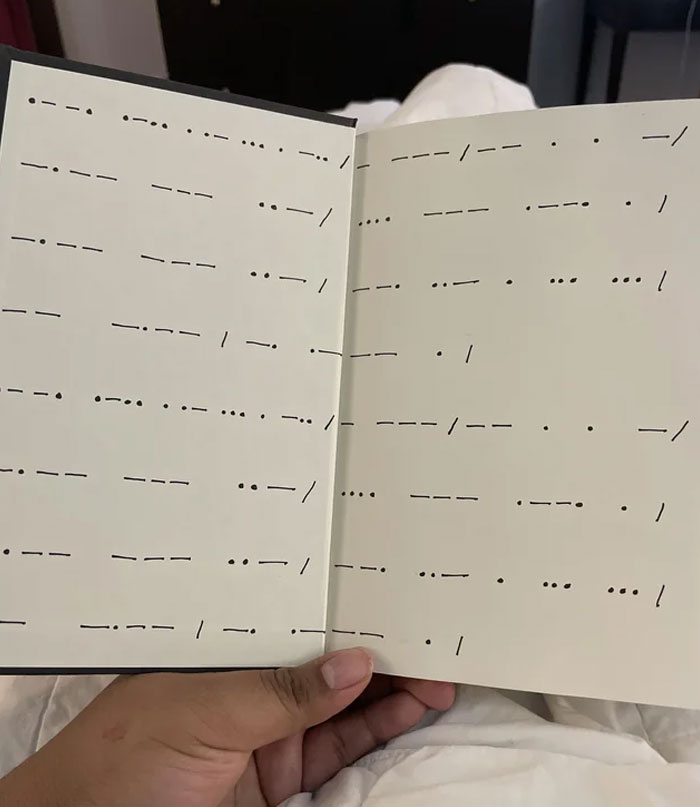 .--. .-.. . .- ... . -.. / - --- / -- . . - /
-.-- --- ..- / .... --- .--. . /
-.-- --- ..- / --. ..- . ... ... /
-- -.-- / -. .- -- . /
.--. .-.. . .- ... . -.. / - --- / -- . . - /
-.-- --- ..- / .... --- .--. . /
-.-- --- ..- / --. ..- . ... ... /
-- -.-- / -. .- -- . /